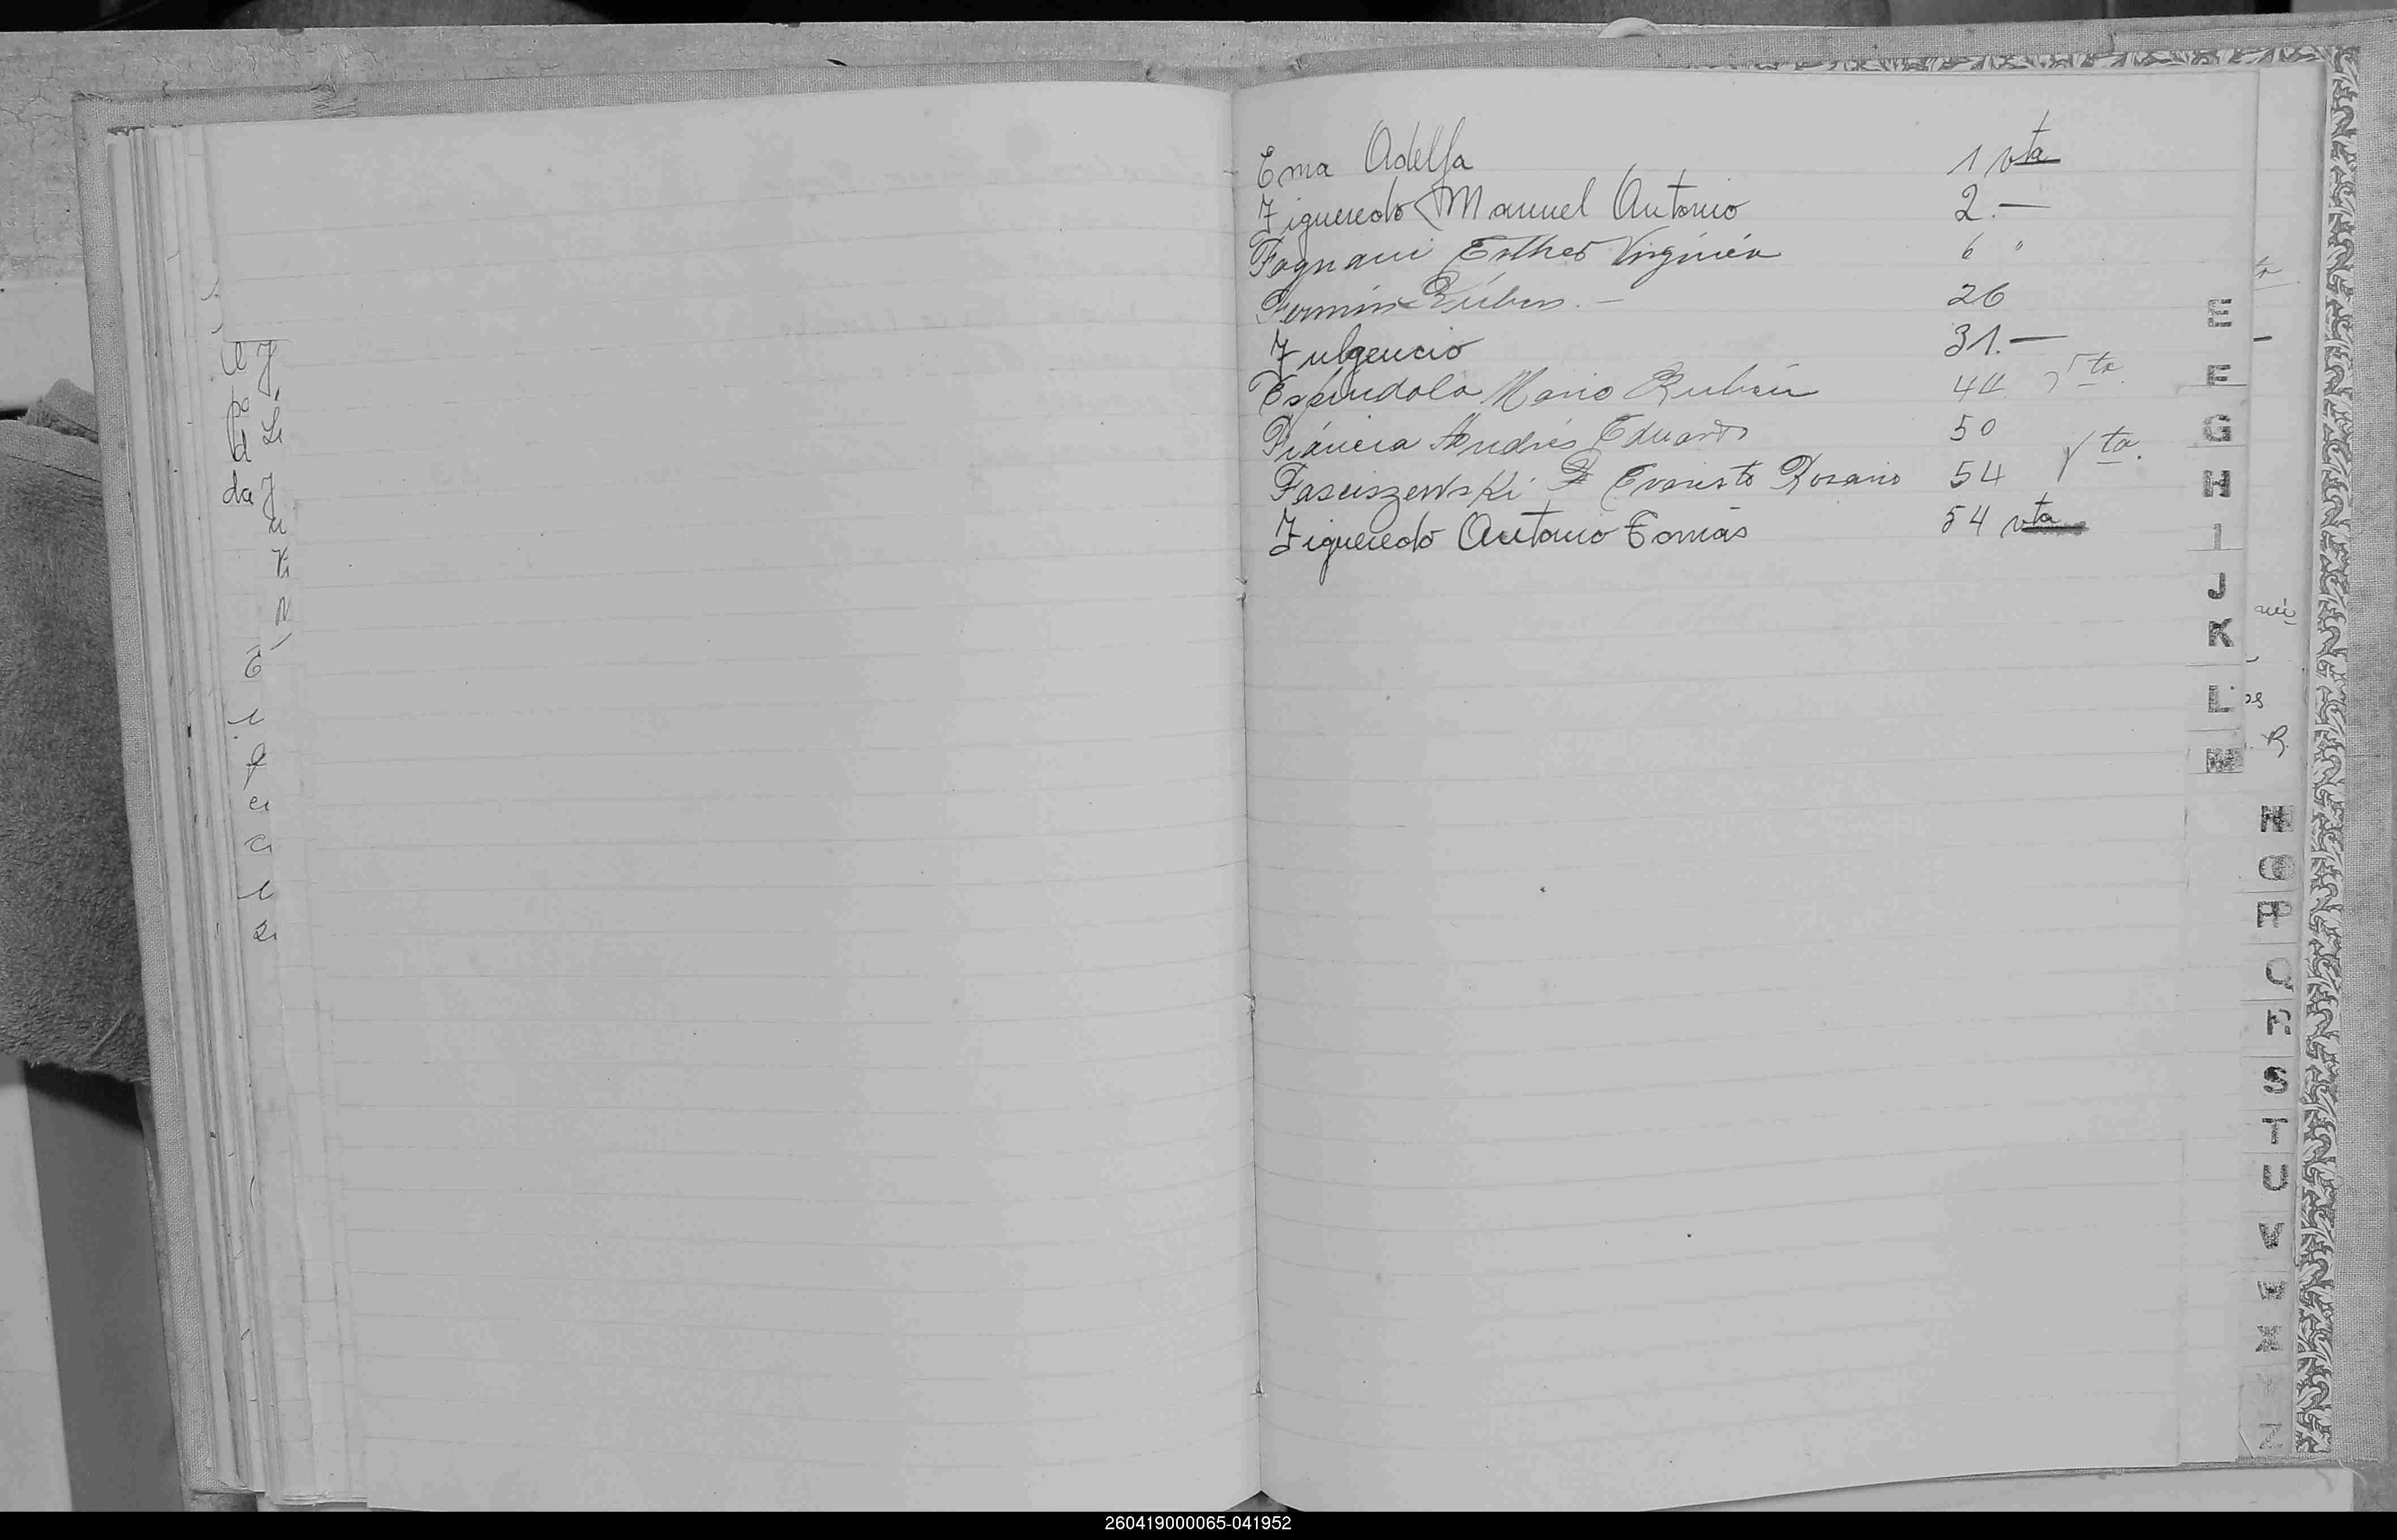 Ema Adelfa 1 vta
Figueredo Manuel Antonio 2.—
Fagnani Esther Virginia 6 "
Fermin Rúben.— 26
Fulgencio 31.—
Espíndola Mario Rubén 44 vta
Andrés Eduardo 50
Fasciszewski Evaristo Rosario 54 vta.
Figueredo Antonio Tomás 54 vta
E
F
G
H
I
J
K
L
M
N
O
P
Q
R
S
T
U
V
W
X
Z
260419000065-041952